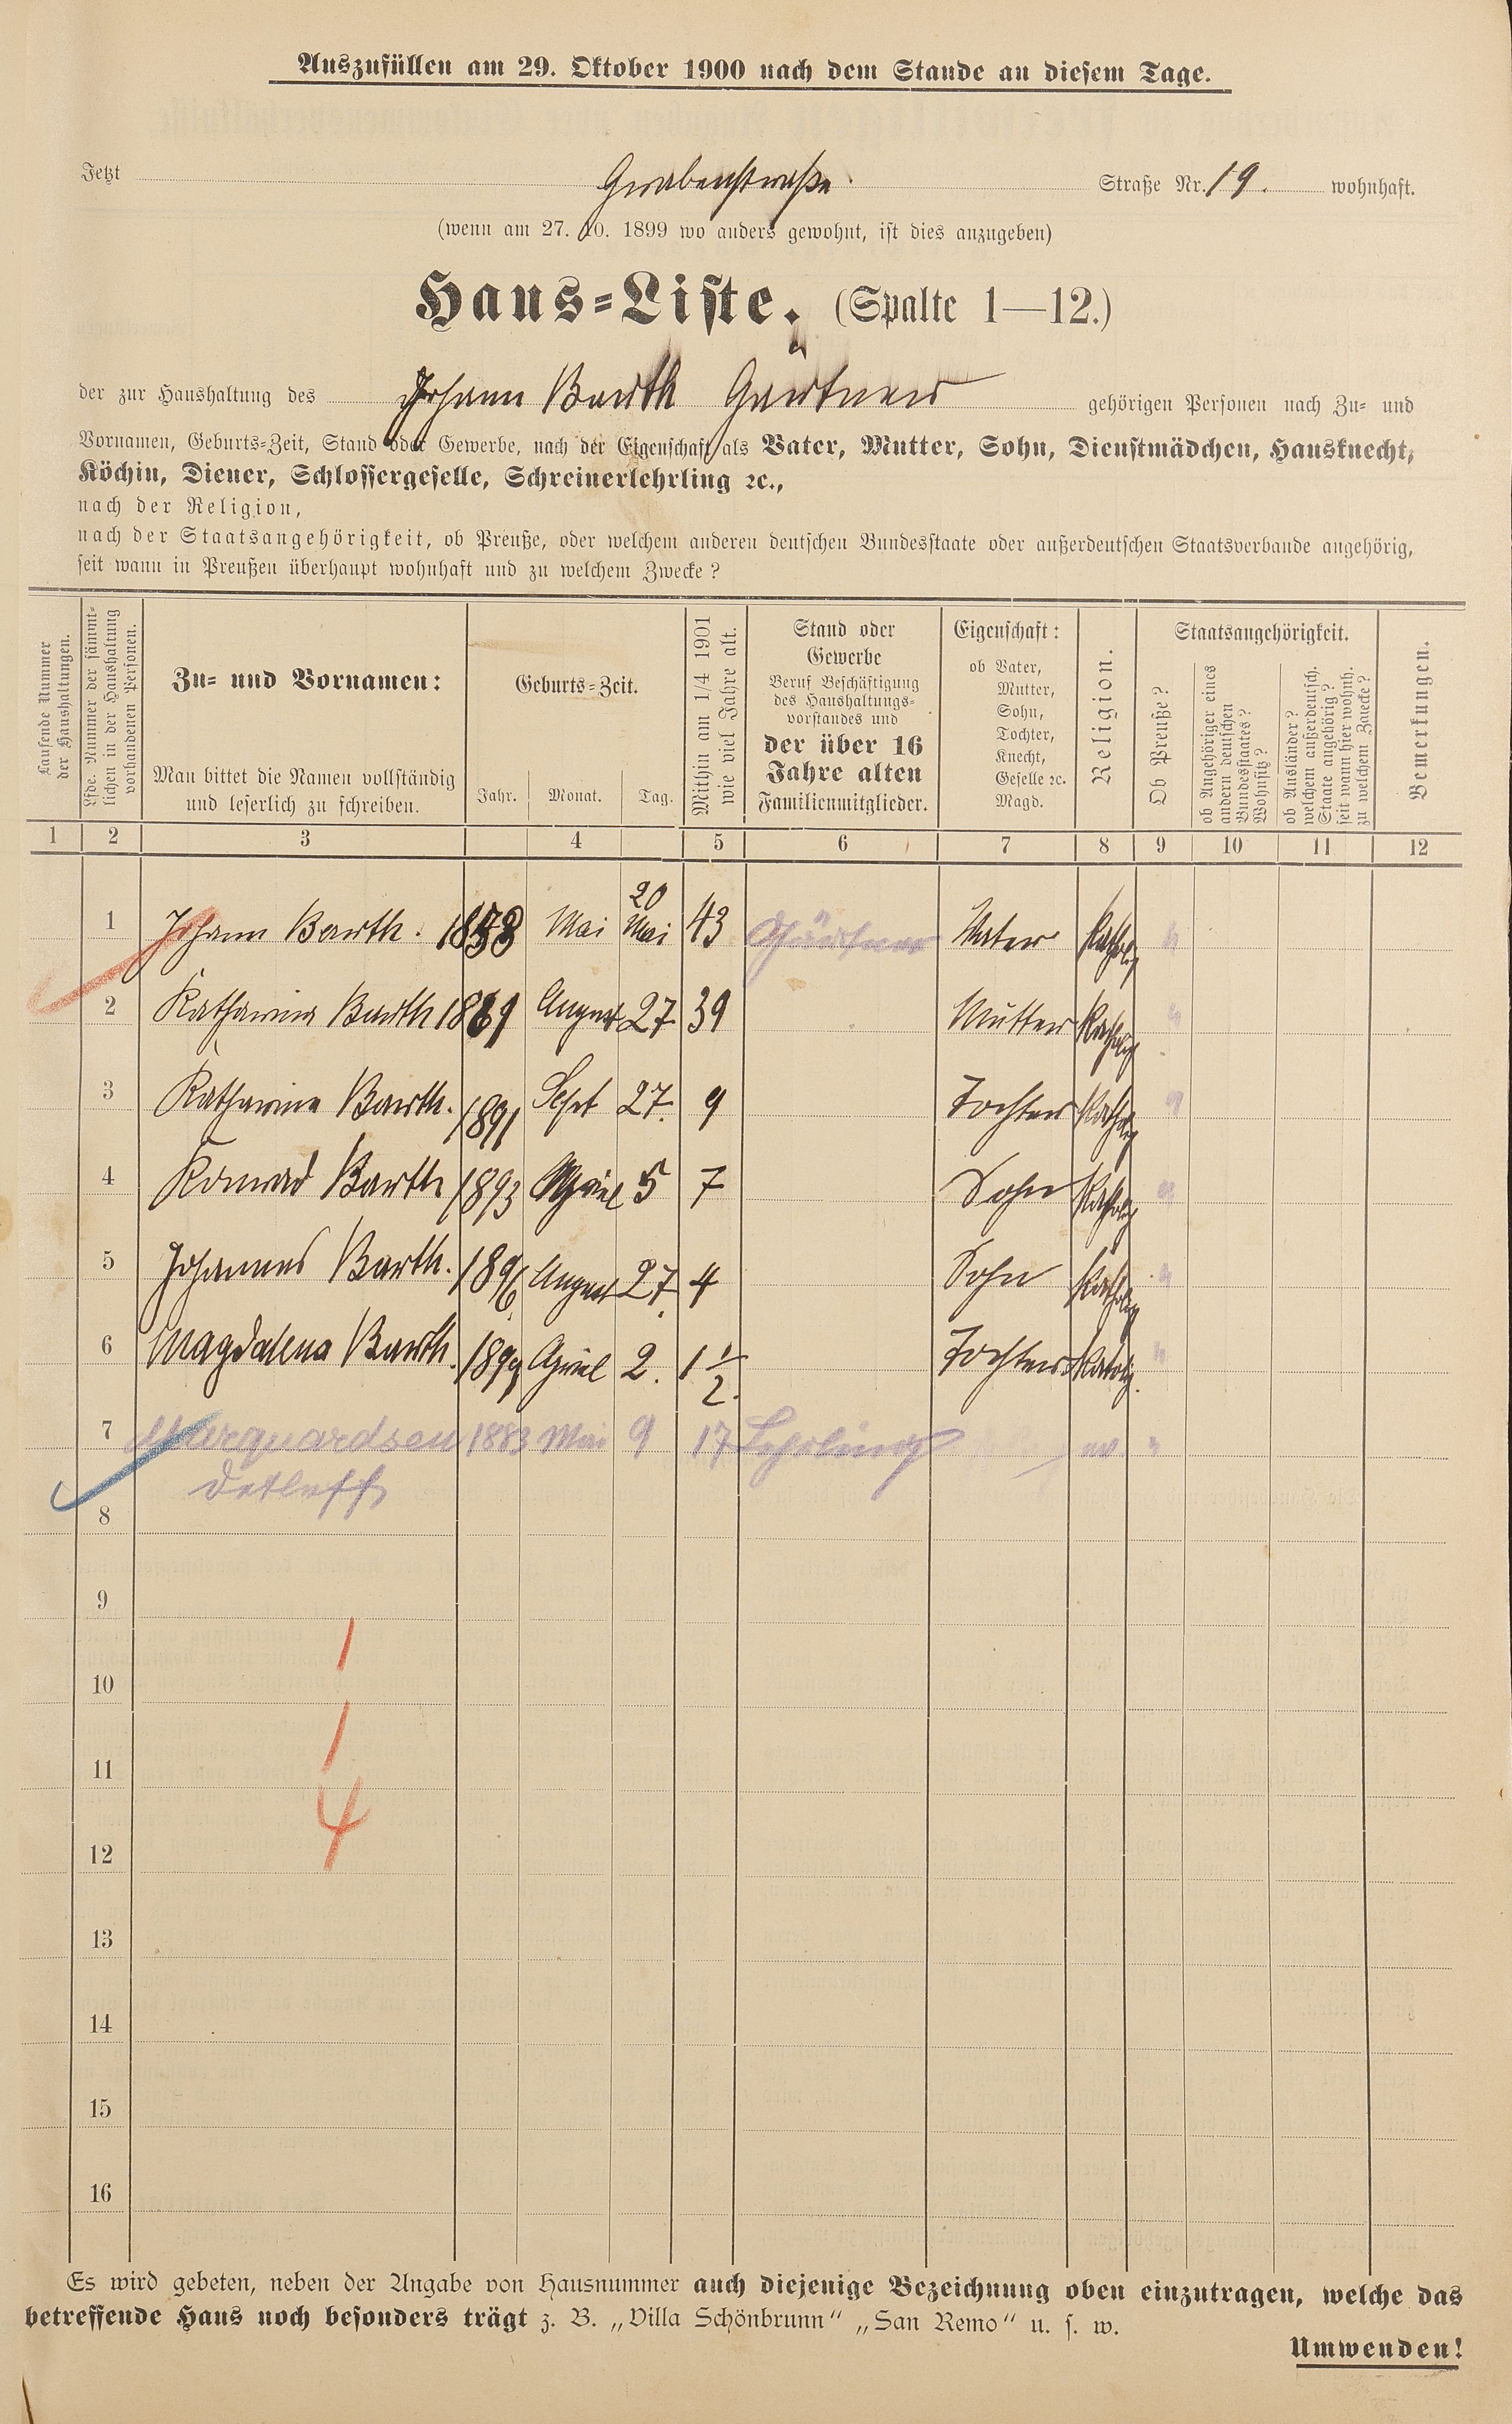 Auszufüllen am 29. Oktober 1900 nach dem Stande an diesem Tage.
Jetzt Grabenstraße Straße Nr. 19. wohnhaft.
(wenn am 27. 10. 1899 wo anders gewohnt, ist dies anzugeben)
Haus=Liste. (Spalte 1—12.)
der zur Haushaltung des Johann Barth Gärtner gehörigen Personen nach Zu- und
Vornamen, Geburts=Zeit, Stand oder Gewerbe, nach der Eigenschaft als Vater, Mutter, Sohn, Dienstmädchen, Hausknecht,
Köchin, Diener, Schlossergeselle, Schreinerlehrling ꝛc.,
nach der Religion,
nach der Staatsangehörigkeit, ob Preuße, oder welchem anderen deutschen Bundesstaate oder außerdeutschen Staatsverbande angehörig,
seit wann in Preußen überhaupt wohnhaft und zu welchem Zwecke?
Laufende Nummer
der Haushaltungen.
Lfde. Nummer der sämmt-
lichen in der Haushaltung
vorhandenen Personen.
Zu= und Vornamen:
Man bittet die Namen vollständig
und leserlich zu schreiben.
Geburts=Zeit.
Jahr. Monat. Tag.
Mithin am 1/4 1901
wie viel Jahre alt.
Stand oder
Gewerbe
Beruf Beschäftigung
des Haushaltungs-
vorstandes und
der über 16
Jahre alten
Familienmitglieder.
Eigenschaft:
ob Vater,
Mutter,
Sohn,
Tochter,
Knecht,
Geselle ꝛc.
Magd.
Religion.
Staatsangehörigkeit.
Ob Preuße?
ob Angehöriger eines
andern deutschen
Bundesstaates?
Wohnsitz?
ob Ausländer?
welchem außerdeutsch.
Staate angehörig?
seit wann hier wohnh.
zu welchem Zwecke?
Bemerkungen.
1 2 3 4 5 6 7 8 9 10 11 12
20
1 Johann Barth. 1858 Mai Mai 43 Gärtner Vater Katholig
2 Katharina Barth 1861 August 27 39 Mutter Katholig
3 Katharina Barth. 1891 Sept 27. 9 Tochter Katholig
4 Konrad Barth 1893 April 5 7 Sohn Katholig
5 Johannes Barth. 1896. August 27. 4 Sohn Katholig
6 Magdalena Barth. 1899 April 2. 1 1/2. Tochter Katolig.
7 Marquardsen 1883 Mai 9 17 Lehrling ev. "
Detleff
8
9
1
10
1
11
4
12
13
14
15
16
Es wird gebeten, neben der Angabe von Hausnummer auch diejenige Bezeichnung oben einzutragen, welche das
betreffende Haus noch besonders trägt z. B. „Villa Schönbrunn“ „San Remo“ u. s. w.
Umwenden!